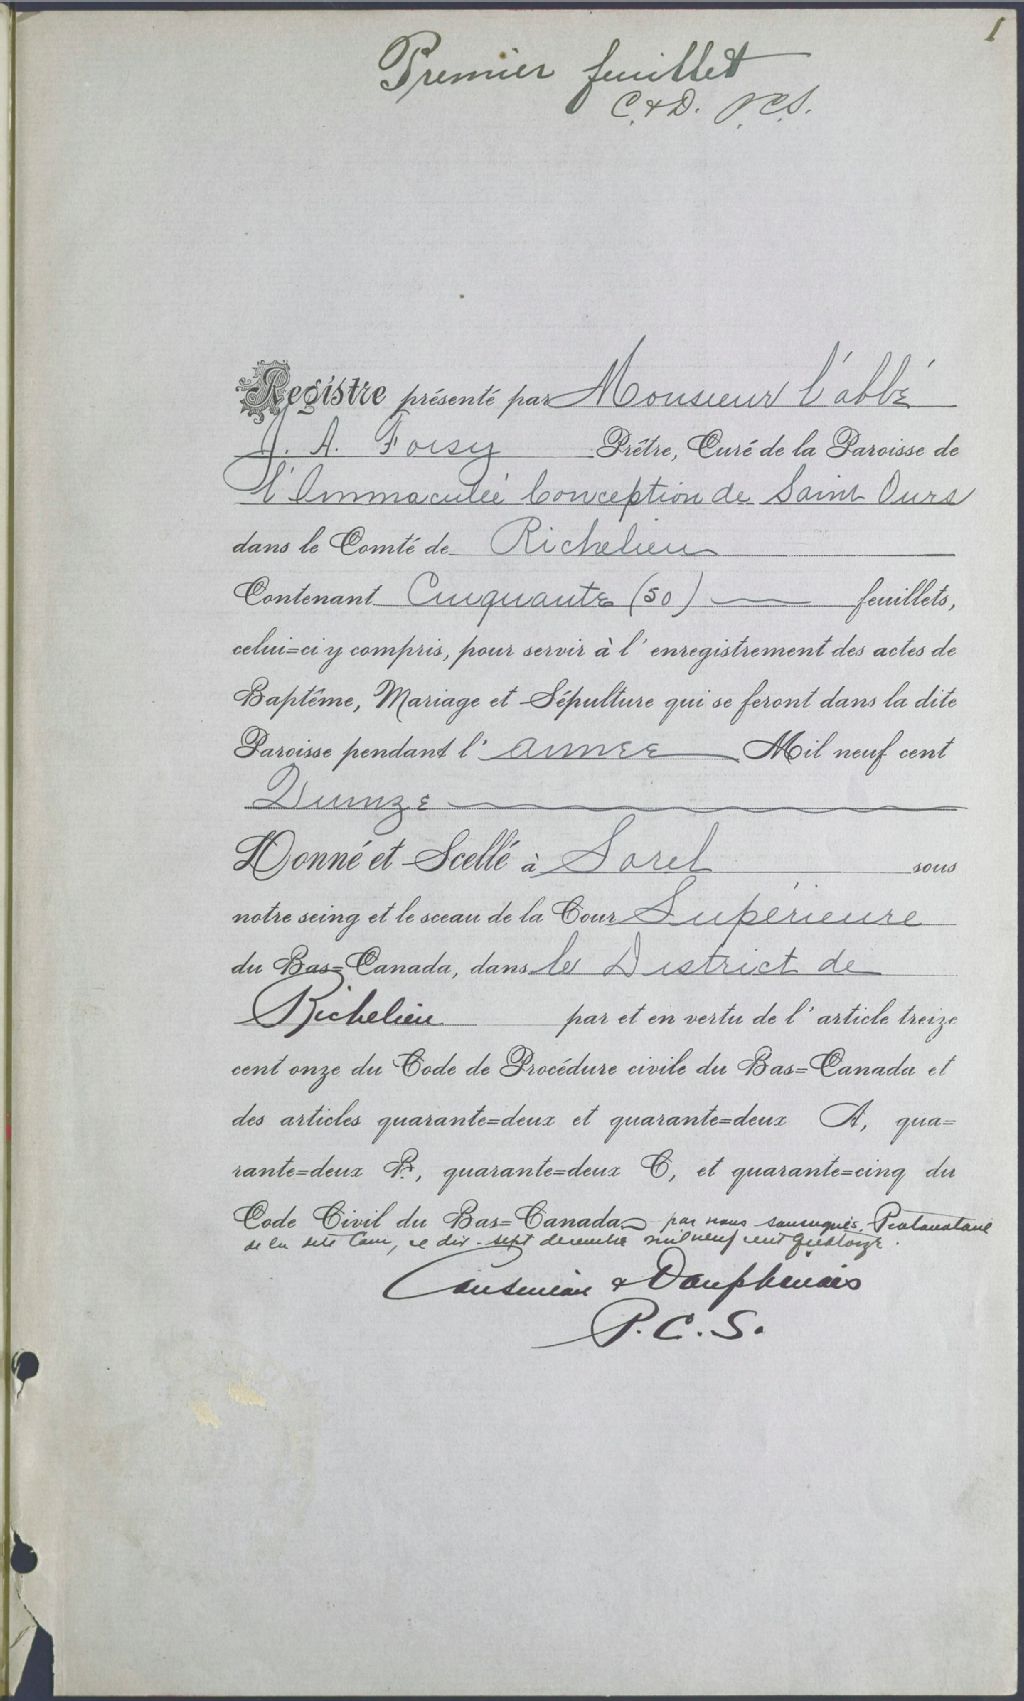 1
Premier feuillet
C. & D. P.C.S.
Registre présenté par Monsieur l'abbé
J. A. Foisy Prêtre, Curé de la Paroisse de
l'Immaculée Conception de Saint Ours
dans le Comté de Richelieu
Contenant Cinquante (50) feuillets,
celui=ci y compris, pour servir à l'enregistrement des actes de
Baptême, Mariage et Sépulture qui se feront dans la dite
Paroisse pendant l'année Mil neuf cent
Quinze
Donné et Scellé à Sorel sous
notre seing et le sceau de la Cour Supérieure
du Bas=Canada, dans le District de
Richelieu par et en vertu de l'article treize
cent onze du Code de Procédure civile du Bas=Canada et
des articles quarante=deux et quarante=deux A, qua=
rante=deux B, quarante=deux C, et quarante=cinq du
Code Civil du Bas=Canada par nous soussignés, Protonotaire
de la dite Cour, ce dix-sept décembre mil neuf cent quatorze.
& Dauphinais
P.C.S.